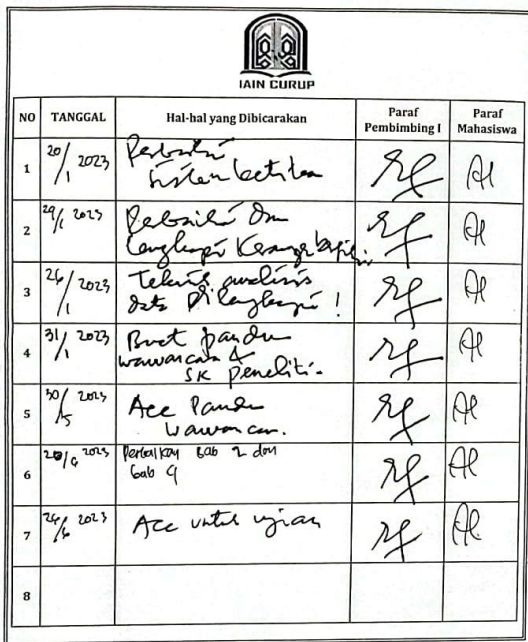 IAIN CURUP
NO TANGGAL Hal-hal yang Dibicarakan Paraf Pembimbing I Paraf Mahasiswa
1 20/1 2023 Perbaiki
sistem
2 2023 Perbaiki Dan
Lengkapi Kerangka
3 26/1 2023 Teknis analisis
data Dilengkapi !
4 31/1 2023 Buat pandu
wawancara &
SK peneliti.
5 30/5 2023 Acc Pandu
wawancara.
6 2023 Perbaikan bab 2 dan
bab 4
7 26/6 2023 Acc untuk ujian
8